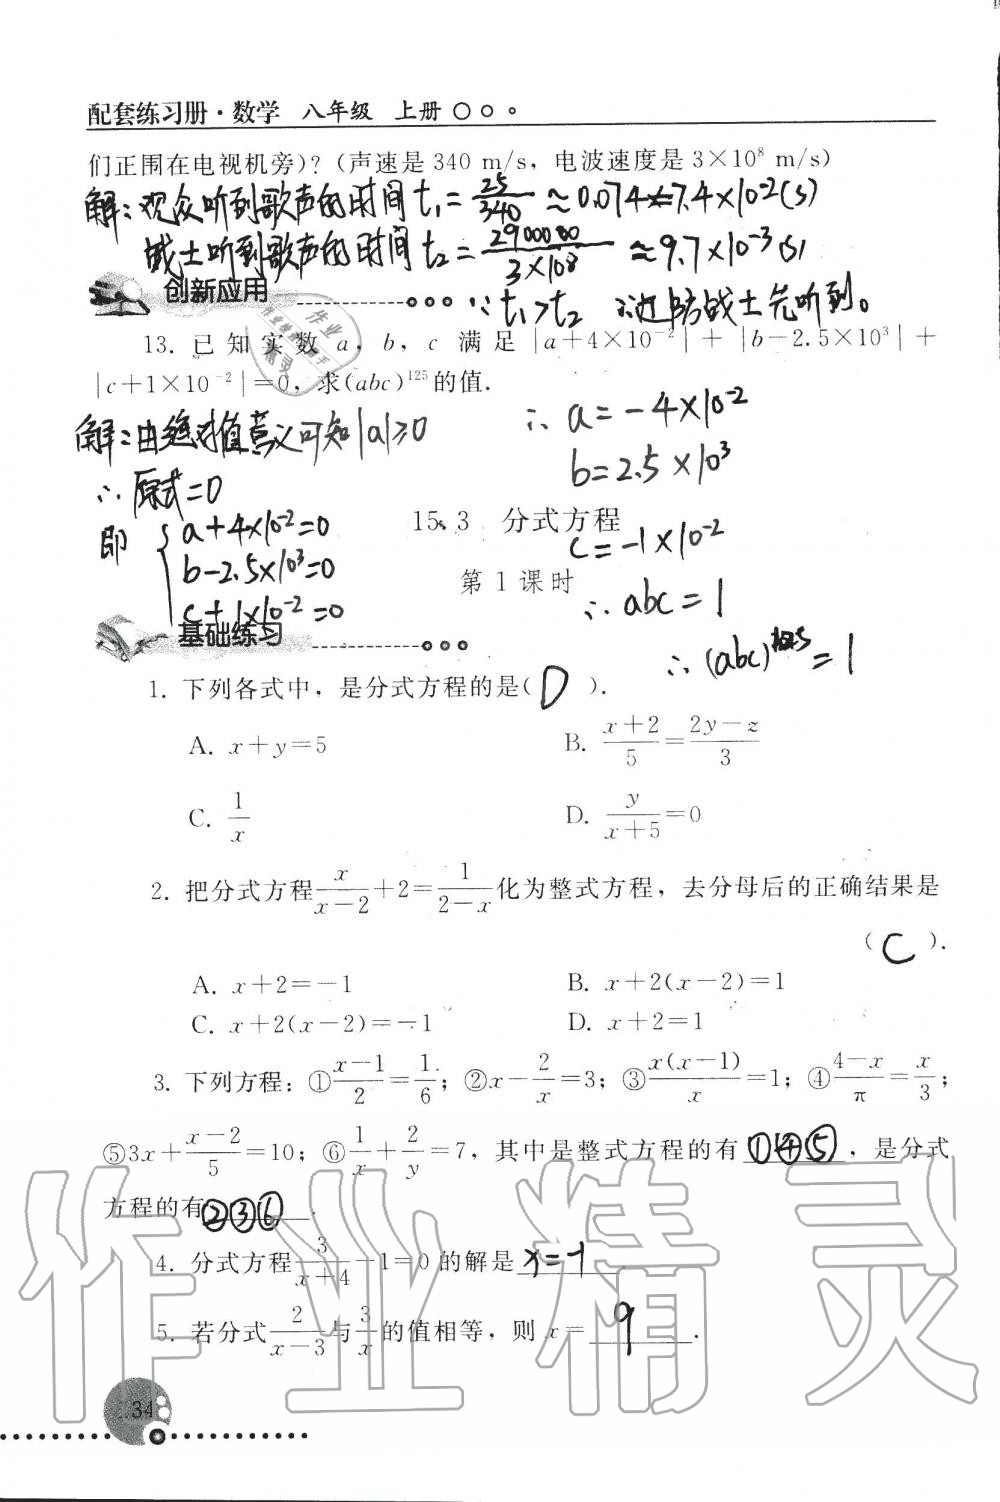 配套练习册·数学 八年级 上册
们正围在电视机旁)?(声速是 340 m/s,电波速度是 3×10⁸ m/s)
解:观众听到歌声的时间 t₁=25/340≈0.074=7.4×10⁻²(s)
战士听到歌声的时间 t₂=2900000/3×10⁸≈9.7×10⁻³(s)
创新应用
∵t₁>t₂ ∴边防战士先听到。
13. 已知实数 a, b, c 满足 |a+4×10⁻²|+|b-2.5×10³|+
|c+1×10⁻²|=0,求(abc)¹²⁵的值.
解:由绝对值意义可知|a|≥0
∴原式=0
即 { a+4×10⁻²=0
b-2.5×10³=0
c+1×10⁻²=0
∴a=-4×10⁻²
b=2.5×10³
c=-1×10⁻²
∴abc=1
∴(abc)¹²⁵=1
15.3 分式方程
第1课时
基础练习
1. 下列各式中,是分式方程的是( D ).
A. x+y=5 B. (x+2)/5=(2y-z)/3
C. 1/x D. y/(x+5)=0
2. 把分式方程 x/(x-2)+2=1/(2-x) 化为整式方程,去分母后的正确结果是
( C ).
A. x+2=-1 B. x+2(x-2)=1
C. x+2(x-2)=-1 D. x+2=1
3. 下列方程:①(x-1)/2=1/6;②x-2/x=3;③x(x-1)/x=1;④(4-x)/π=x/3;
⑤3x+(x-2)/5=10;⑥1/x+2/y=7,其中是整式方程的有 ①④⑤ ,是分式
方程的有 ②③⑥ .
4. 分式方程 3/(x+4)-1=0 的解是 x=-1 .
5. 若分式 2/(x-3) 与 3/x 的值相等,则 x= 9 .
34
作业精灵